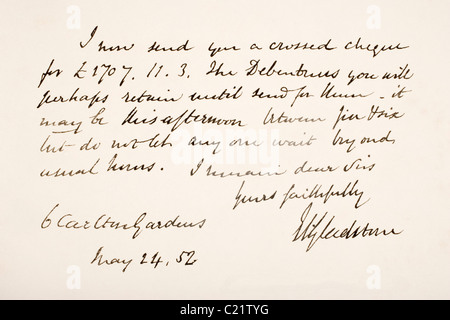 I now send you a crossed cheque
for £1707. 11. 3. The Debentures you will
perhaps retain until send for them - it
may be this afternoon between five & six
but do not let any one wait beyond
usual hours. I remain dear Sirs
Yours faithfully
WEGladstone
6 Carlton Gardens
May 24. 52
alamy
Image ID: C21TYG
www.alamy.com